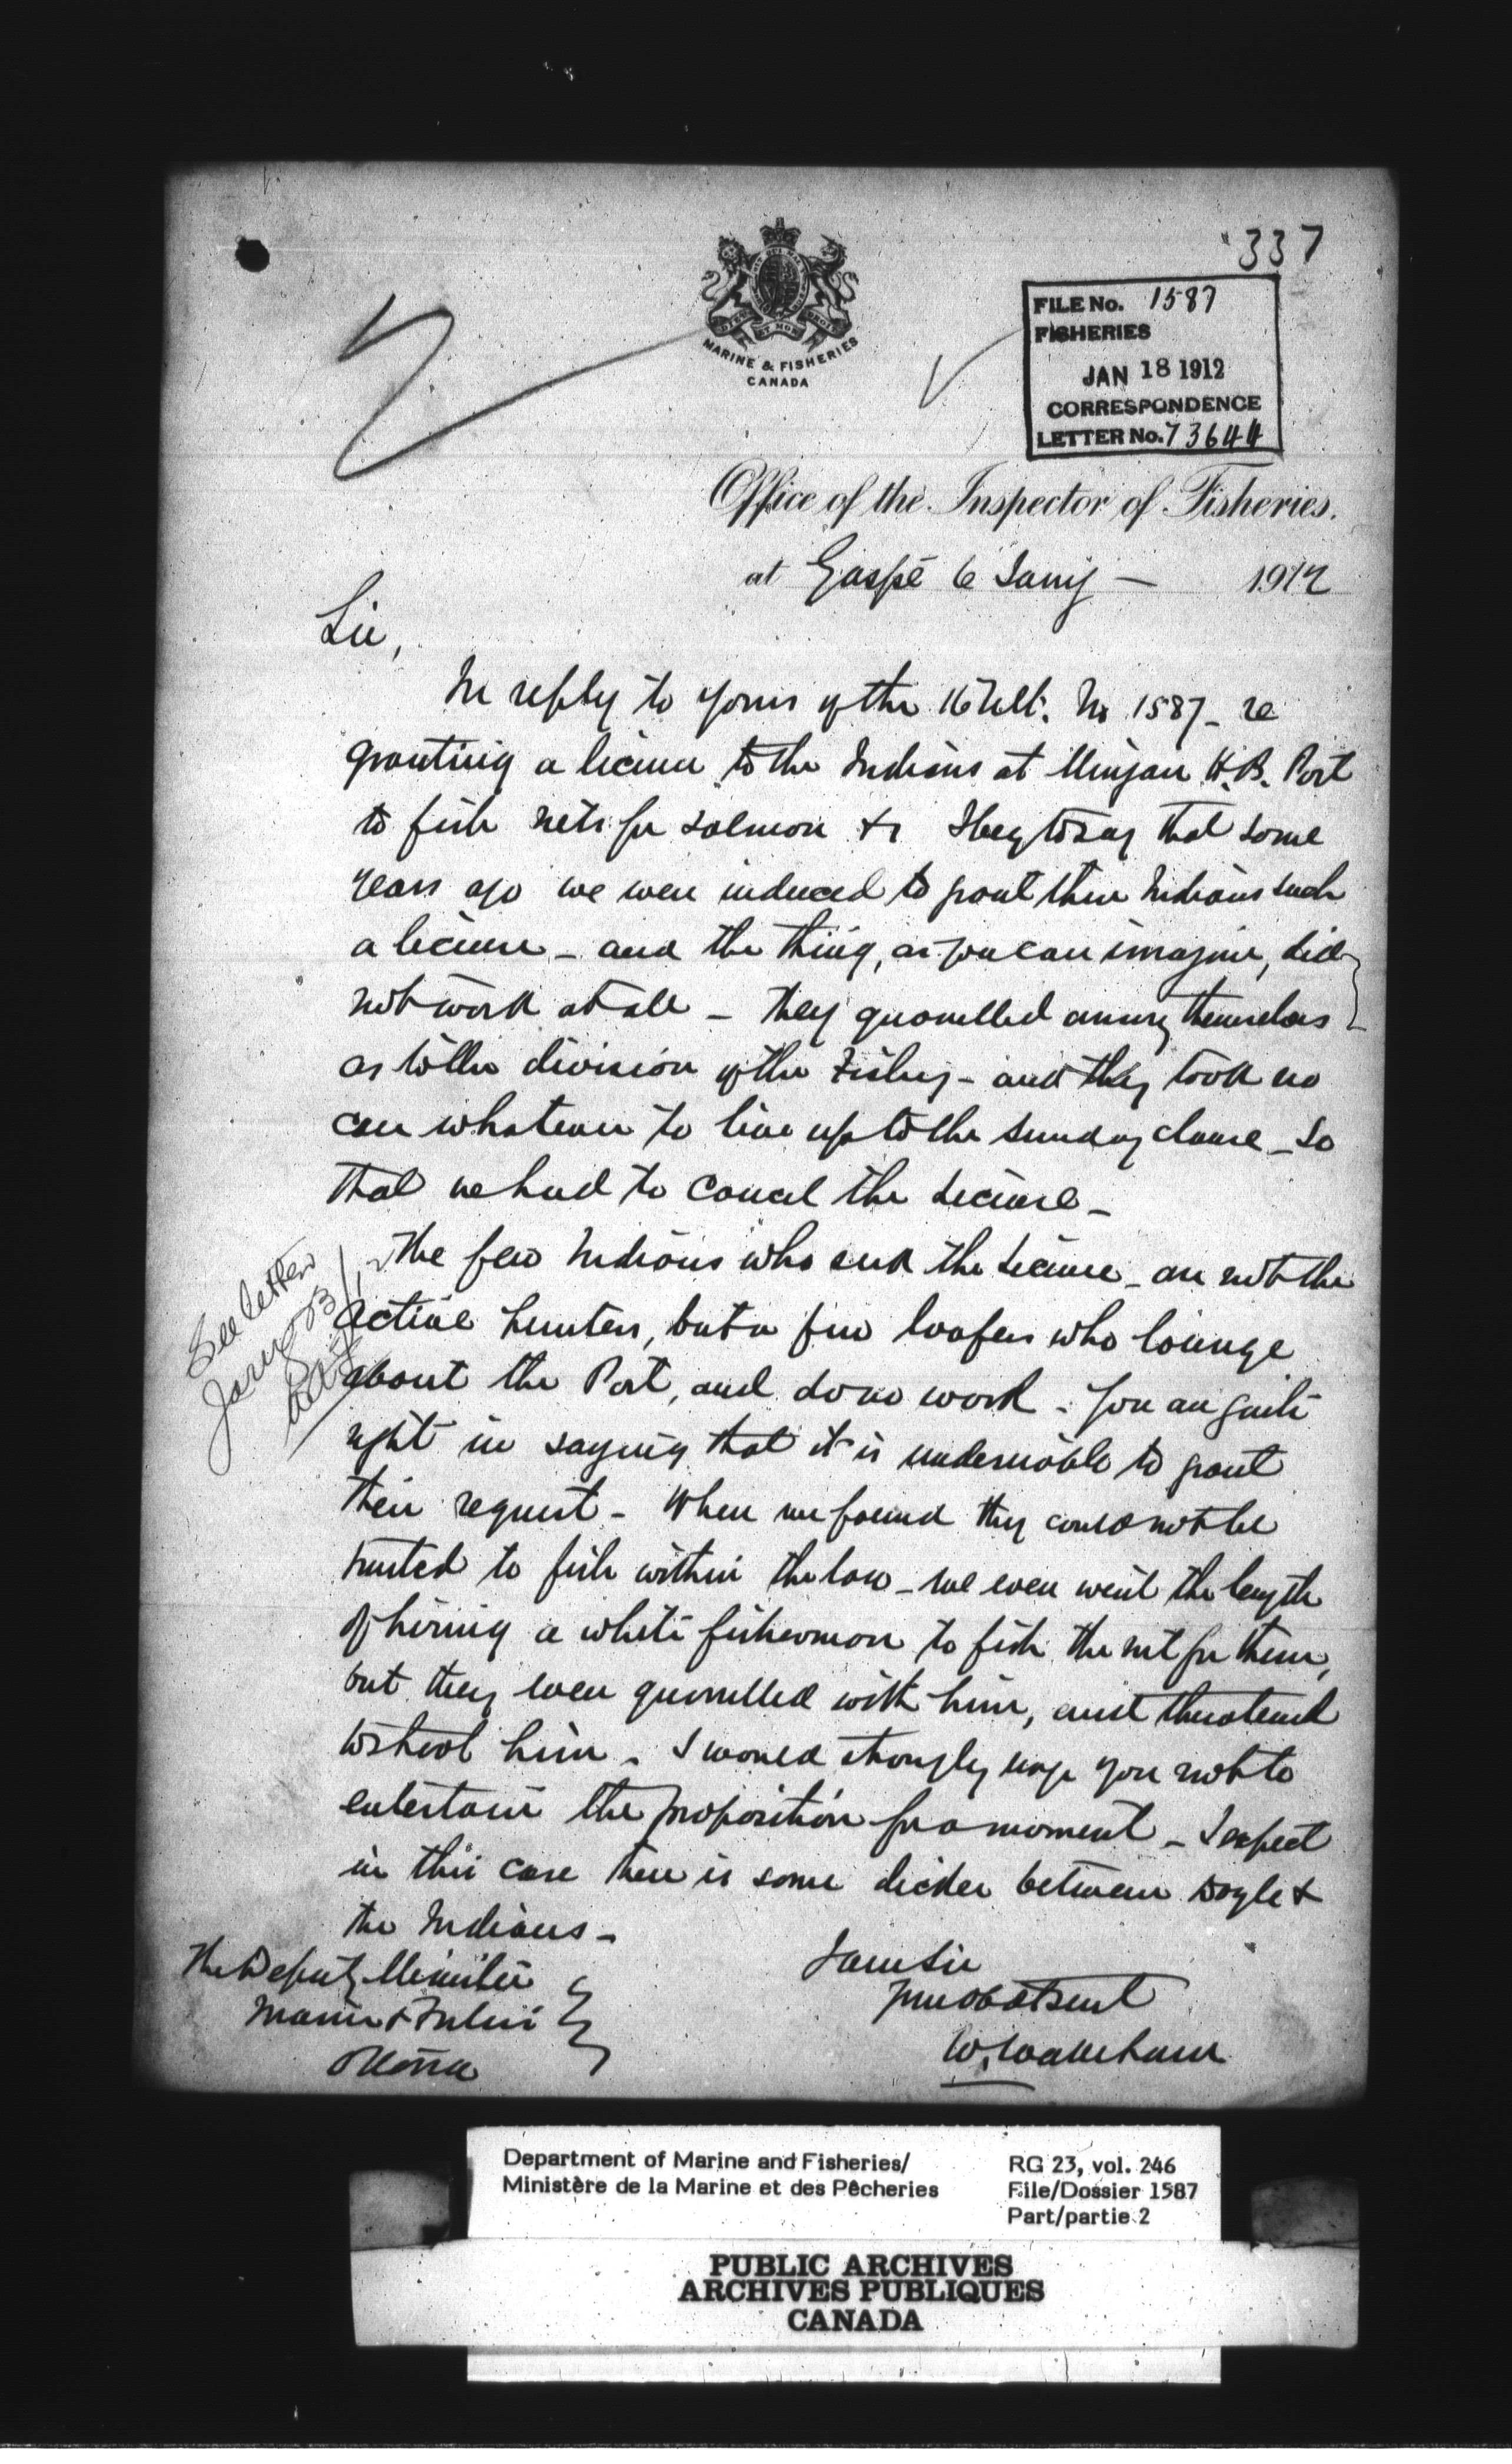 337
MARINE & FISHERIES
CANADA
FILE No. 1587
FISHERIES
JAN 18 1912
CORRESPONDENCE
LETTER No. 73644
Office of the Inspector of Fisheries.
at Gaspé 6 Jany — 1912
Sir,
In reply to yours of the 16 Ult. No 1587 - re
granting a licence to the Indians at Mingan H.B. Post
to fish nets for salmon &c I beg to say that some
years ago we were induced to grant these Indians such
a licence - and the thing, as you can imagine, did
not work at all - They quarrelled among themselves
as to the division of the Fishing - and they took no
care whatever to live up to the Sunday clause - so
that we had to cancel the licence -
The few Indians who seek the licence - are not the
active hunters, but a few loafers who lounge
about the Post, and do no work - You are quite
right in saying that it is undesirable to grant
their request - When we found they could not be
trusted to fish within the law - we even went the length
of hiring a white fisherman to fish the net for them,
but they even quarrelled with him, and threatened
to shoot him - I would strongly urge you not to
entertain the proposition for a moment - I expect
in this case there is some dicker between Doyle &
the Indians -
See letter
Jany 23/12
I am Sir
Your obdt servt
W. Wakeham
The Deputy Minister
Marine & Fisheries
Ottawa
Department of Marine and Fisheries/
Ministère de la Marine et des Pêcheries
RG 23, vol. 246
File/Dossier 1587
Part/partie 2
PUBLIC ARCHIVES
ARCHIVES PUBLIQUES
CANADA